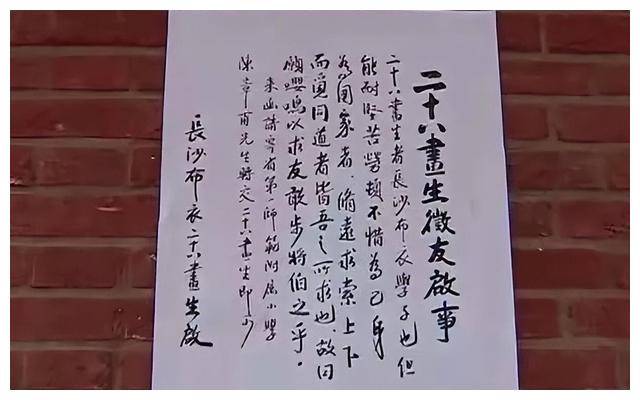 二十八畫生徵友啟事
二十八畫生者長沙布衣學子也但
能耐堅苦勞頓不惜為己身
為國家者脩遠求索上下
而覓同道者皆吾之所求也故曰
願嚶鳴以求友敢步將伯之乎。
來函請寄省第一師範附屬小學
陳章甫先生轉交二十八畫生即可
長沙布衣二十八畫生啟